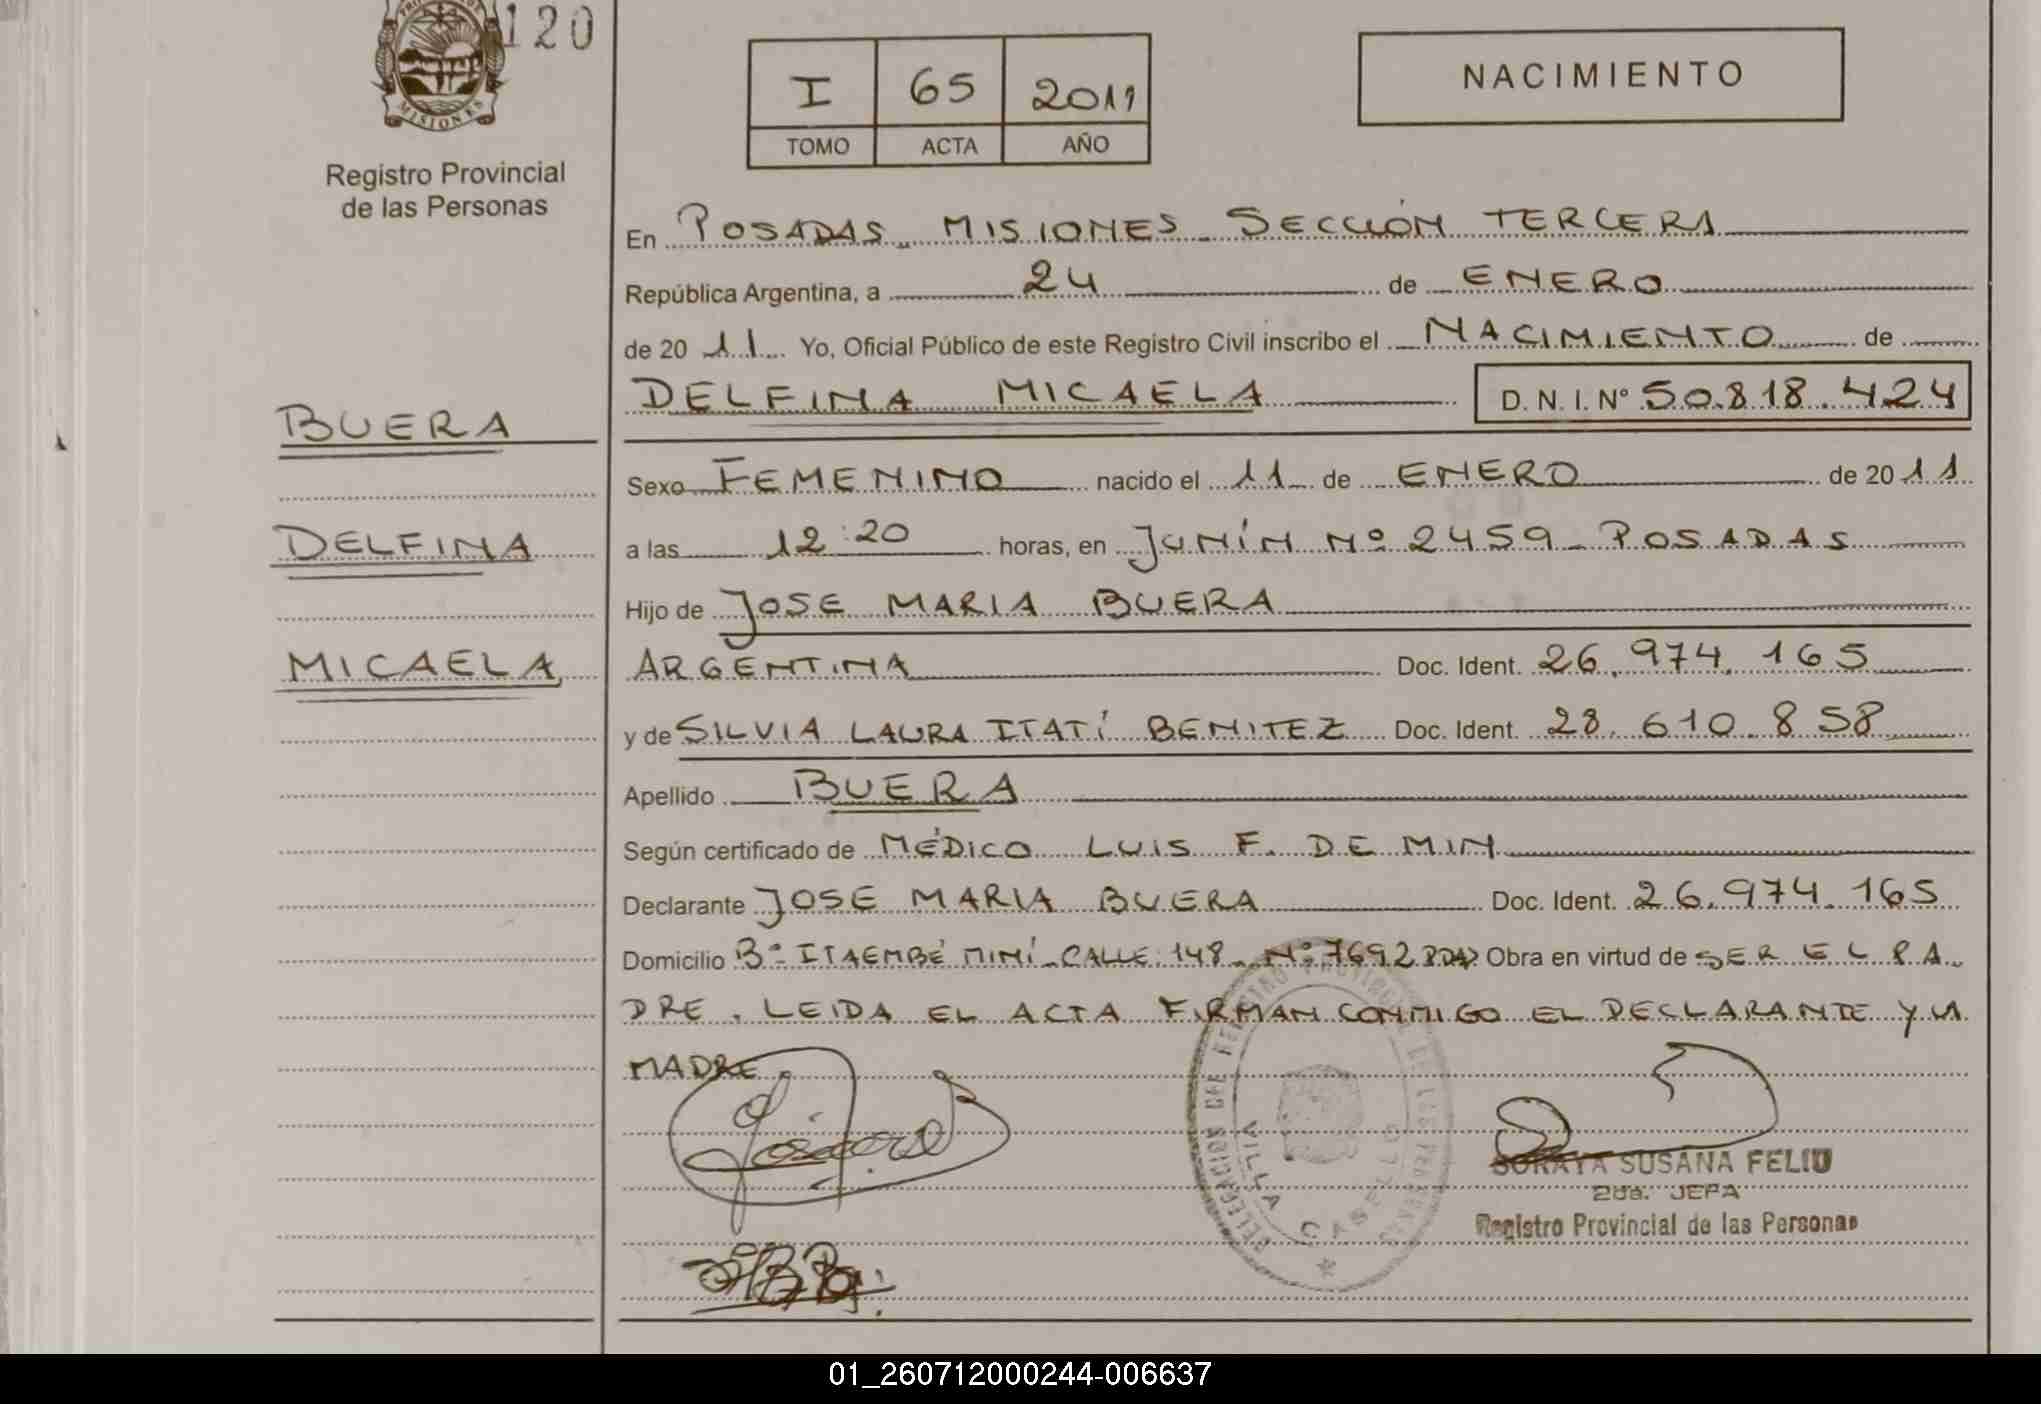 120
MISIONES
Registro Provincial
de las Personas
I 65 2011
TOMO ACTA AÑO
NACIMIENTO
En POSADAS - MISIONES - SECCIÓN TERCERA
República Argentina, a 24 de ENERO
de 2011 Yo, Oficial Público de este Registro Civil inscribo el NACIMIENTO de
DELFINA MICAELA D. N. I. Nº 50.818.424
BUERA
DELFINA
MICAELA
Sexo FEMENINO nacido el 11 de ENERO de 2011
a las 12:20 horas, en JUNÍN Nº 2459 - POSADAS
Hijo de JOSE MARIA BUERA
ARGENTINA Doc. Ident. 26.974.165
y de SILVIA LAURA ITATÍ BENITEZ Doc. Ident. 28.610.858
Apellido BUERA
Según certificado de MÉDICO LUIS F. DE MIN
Declarante JOSE MARIA BUERA Doc. Ident. 26.974.165
Domicilio Bº ITAEMBÉ MINÍ - CALLE 148 - Nº 7692 PDAS Obra en virtud de SER EL PA-
DRE. LEIDA EL ACTA FIRMAN CONMIGO EL DECLARANTE Y LA
MADRE
DELEGACION DEL REGISTRO PROVINCIAL DE LAS PERSONAS
VILLA CABELLO
SORAYA SUSANA FELIU
2da. JEFA
Registro Provincial de las Personas
01_260712000244-006637